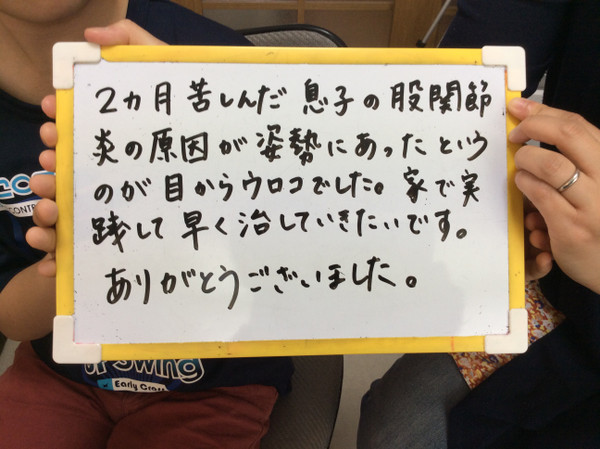 2カ月苦しんだ息子の股関節
炎の原因が姿勢にあったという
のが目からウロコでした。家で実
践して早く治していきたいです。
ありがとうございました。
CONTR
Swing
Early Cros